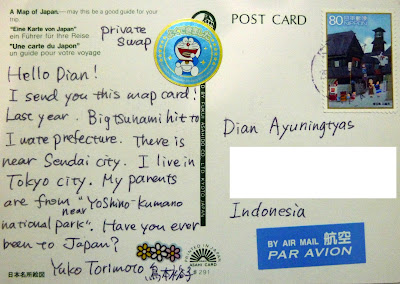 A Map of Japan,—may this be a good guide for your trip
"Eine Karte von Japan"
ein Führer für Ihre Reise
"Une carte du Japon"
un guide pour votre voyage
private
swap
POST CARD
80
日本郵便
NIPPON
Hello Dian!
I send you this map card!
Last year. Big tsunami hit to
Iwate prefecture. There is
near Sendai city. I live in
Tokyo city. My parents
are from near "Yoshino-Kumano
national park". Have you ever
been to Japan?
Yuko Torimoto 鳥本裕子
Dian Ayuningtyas
Indonesia
BY AIR MAIL 航空
PAR AVION
日本名所絵図
PRINTED IN JAPAN
ASAHI CARD
#291